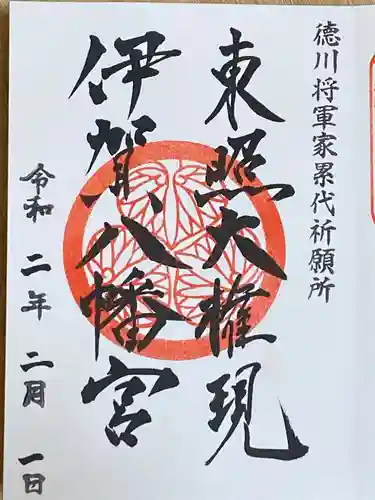 徳川将軍家累代祈願所
東照大権現
伊賀八幡宮
令和二年二月一日